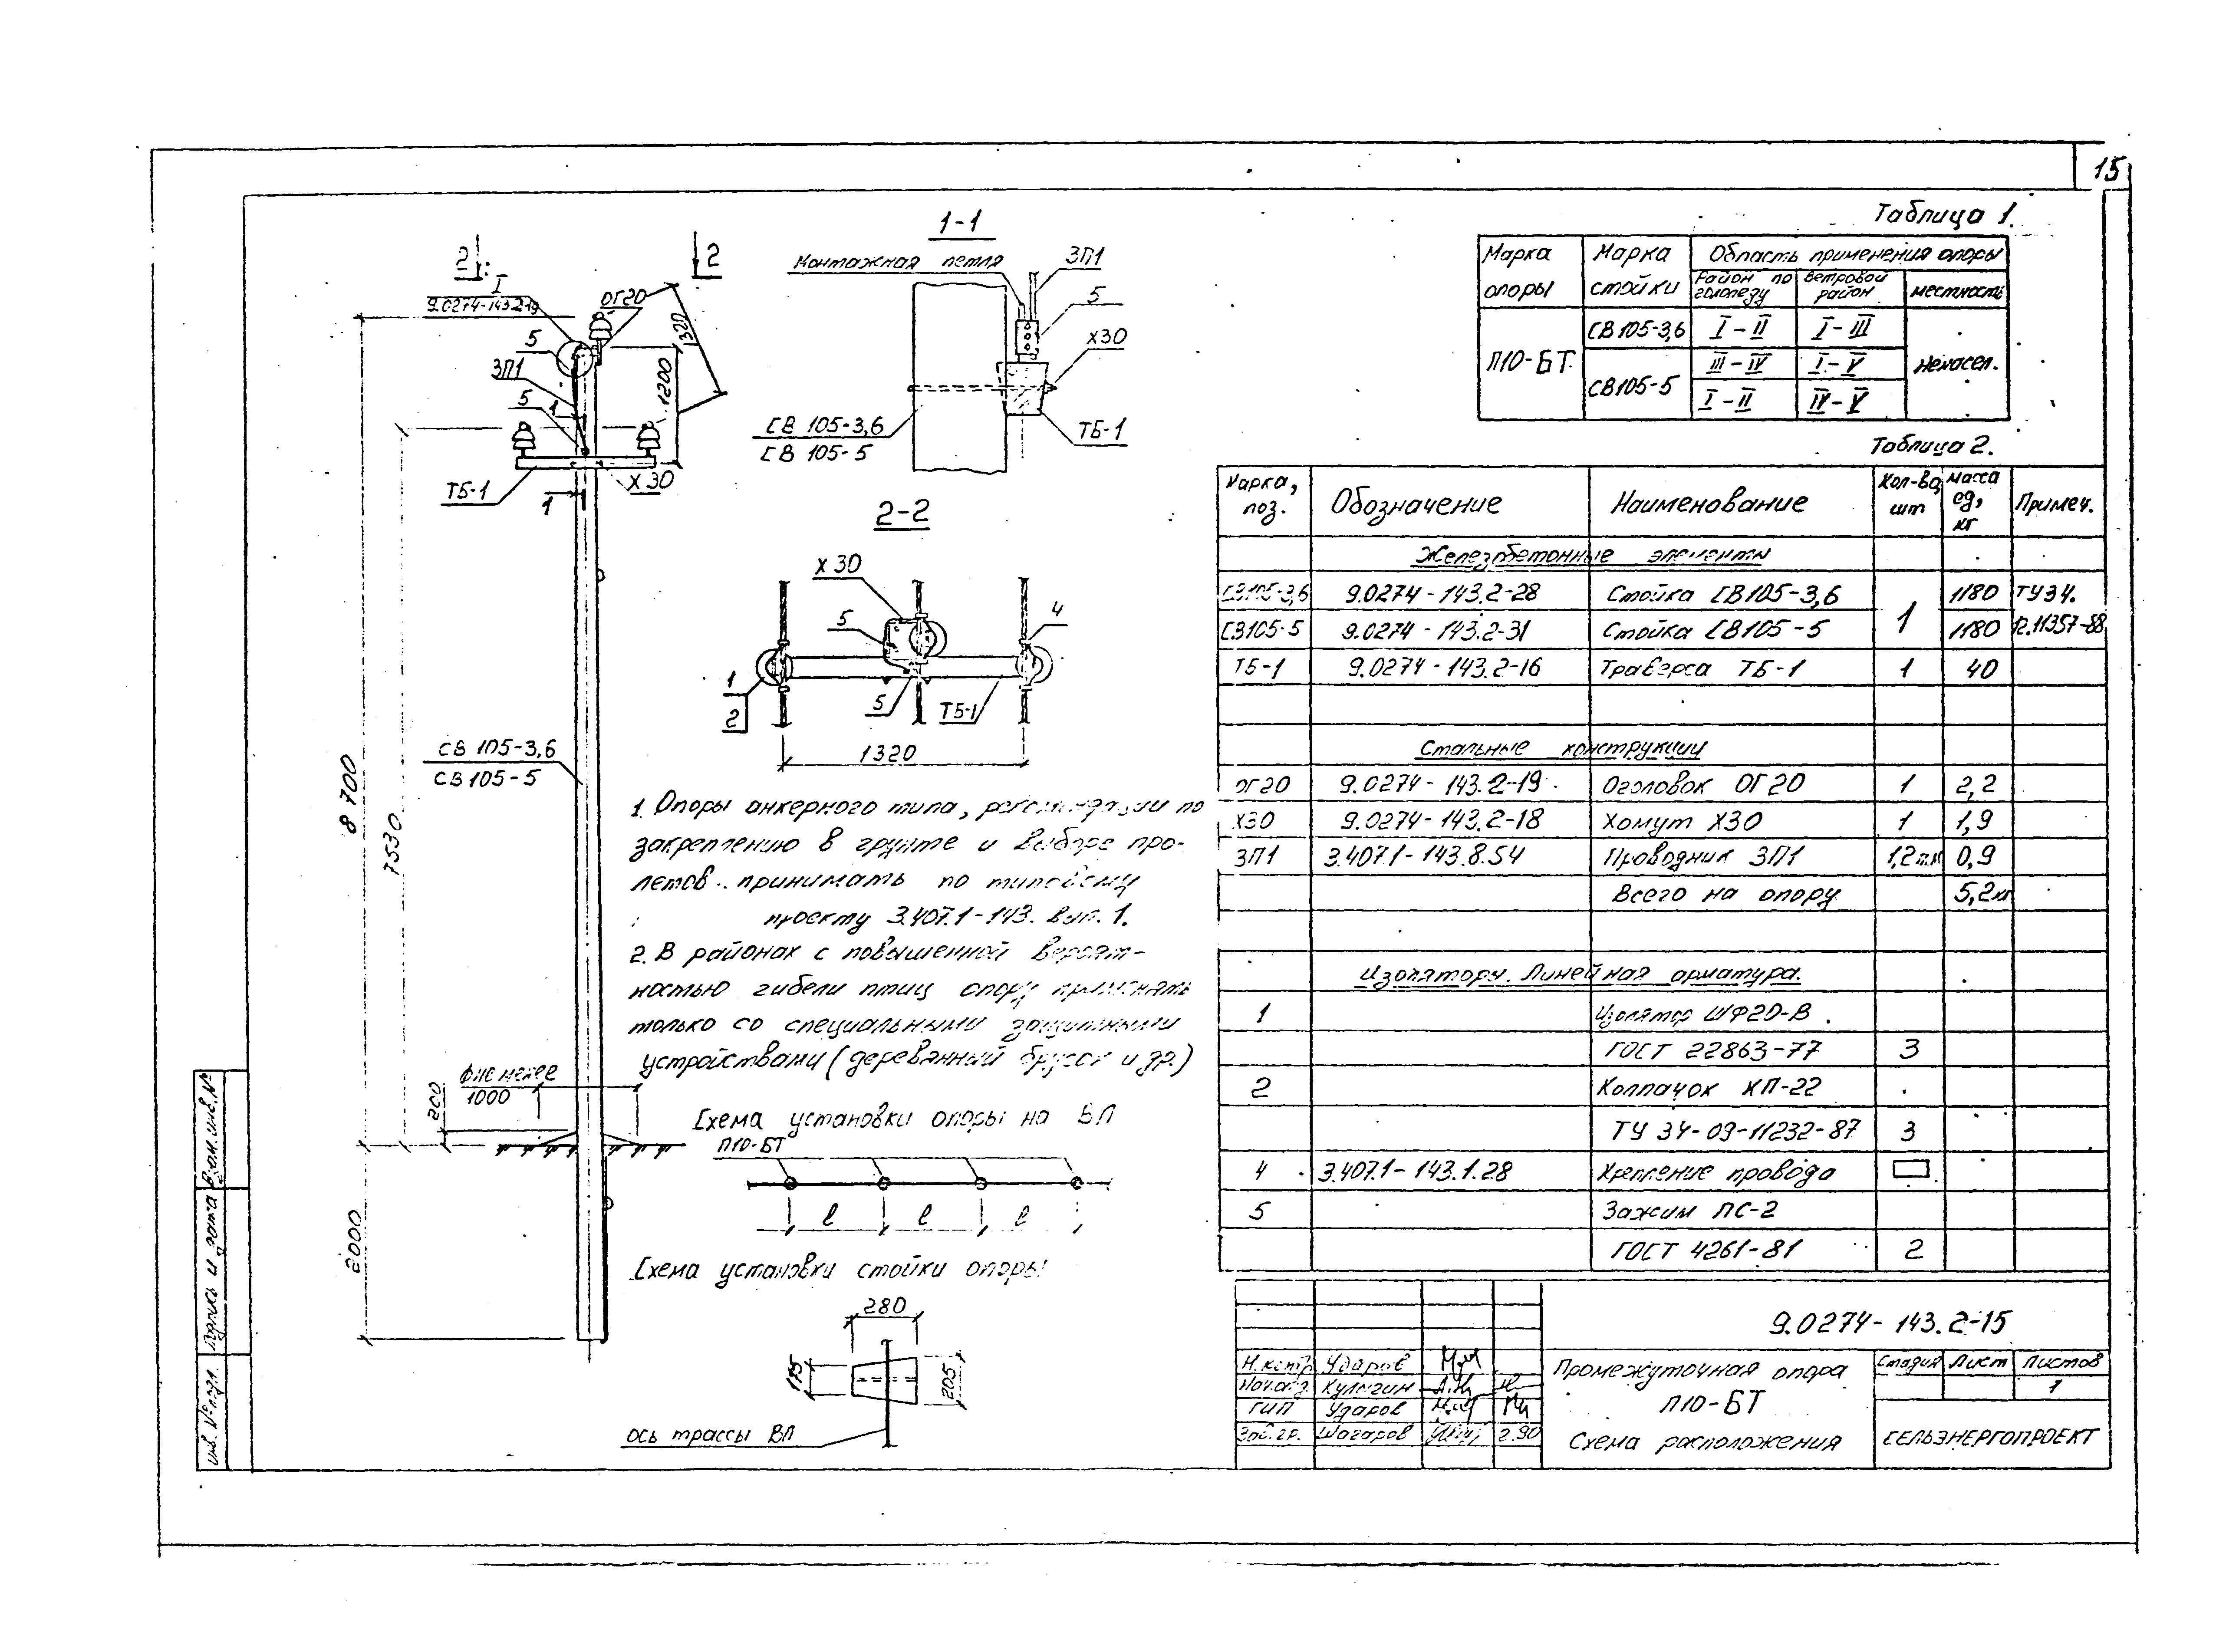 15
2
2
I
9.0274-143.2-19
ОГ20
5
ЗП1
5
1
1320
1200
ТБ-1
Х30
1
8700
7530
СВ 105-3,6
СВ 105-5
не менее
1000
200
2000
1-1
Монтажная петля
ЗП1
5
Х30
СВ 105-3,6
СВ 105-5
ТБ-1
2-2
Х30
5
4
1
2
5
ТБ-1
1320
1. Опоры анкерного типа, рекомендации по
закреплению в грунте и выборе про-
летов принимать по типовому
проекту 3.407.1-143. вып. 1.
2. В районах с повышенной вероят-
ностью гибели птиц опору применять
только со специальными защитными
устройствами (деревянный брусок и др.)
Схема установки опоры на ВЛ
П10-БТ
ℓ ℓ ℓ
Схема установки стойки опоры
280
205
ось трассы ВЛ
Таблица 1.
Марка опоры
Марка стойки
Область применения опоры
Район по гололеду
Ветровой район
местность
П10-БТ
СВ 105-3,6 I-II I-III
СВ105-5 III-IV I-V Ненасел.
I-II IV-V
Таблица 2.
Марка, поз. Обозначение Наименование Кол-во, шт Масса ед, кг Примеч.
Железобетонные элементы
СВ105-3,6 9.0274-143.2-28 Стойка СВ105-3,6 1 1180 ТУ34.
СВ105-5 9.0274-143.2-31 Стойка СВ105-5 1180 12.11357-88
ТБ-1 9.0274-143.2-16 Траверса ТБ-1 1 40
Стальные конструкции
ОГ20 9.0274-143.2-19 Оголовок ОГ20 1 2,2
Х30 9.0274-143.2-18 Хомут Х30 1 1,9
ЗП1 3.407.1-143.8.54 Проводник ЗП1 1,2 п.м 0,9
Всего на опору 5,2 кг
Изоляторы. Линейная арматура.
1 Изолятор ШФ20-В
ГОСТ 22863-77 3
2 Колпачок КП-22
ТУ 34-09-11232-87 3
4 3.407.1-143.1.28 Крепление провода
5 Зажим ПС-2
ГОСТ 4261-81 2
9.0274-143.2-15
Н.контр Ударов
Нач.отд. Кулыгин
ГИП Ударов
Зав.гр. Шагаров 2.90
Промежуточная опора
П10-БТ
Схема расположения
Стадия Лист Листов
1
СЕЛЬЭНЕРГОПРОЕКТ
Взам.инв.№
Подпись и дата
Инв. № подл.